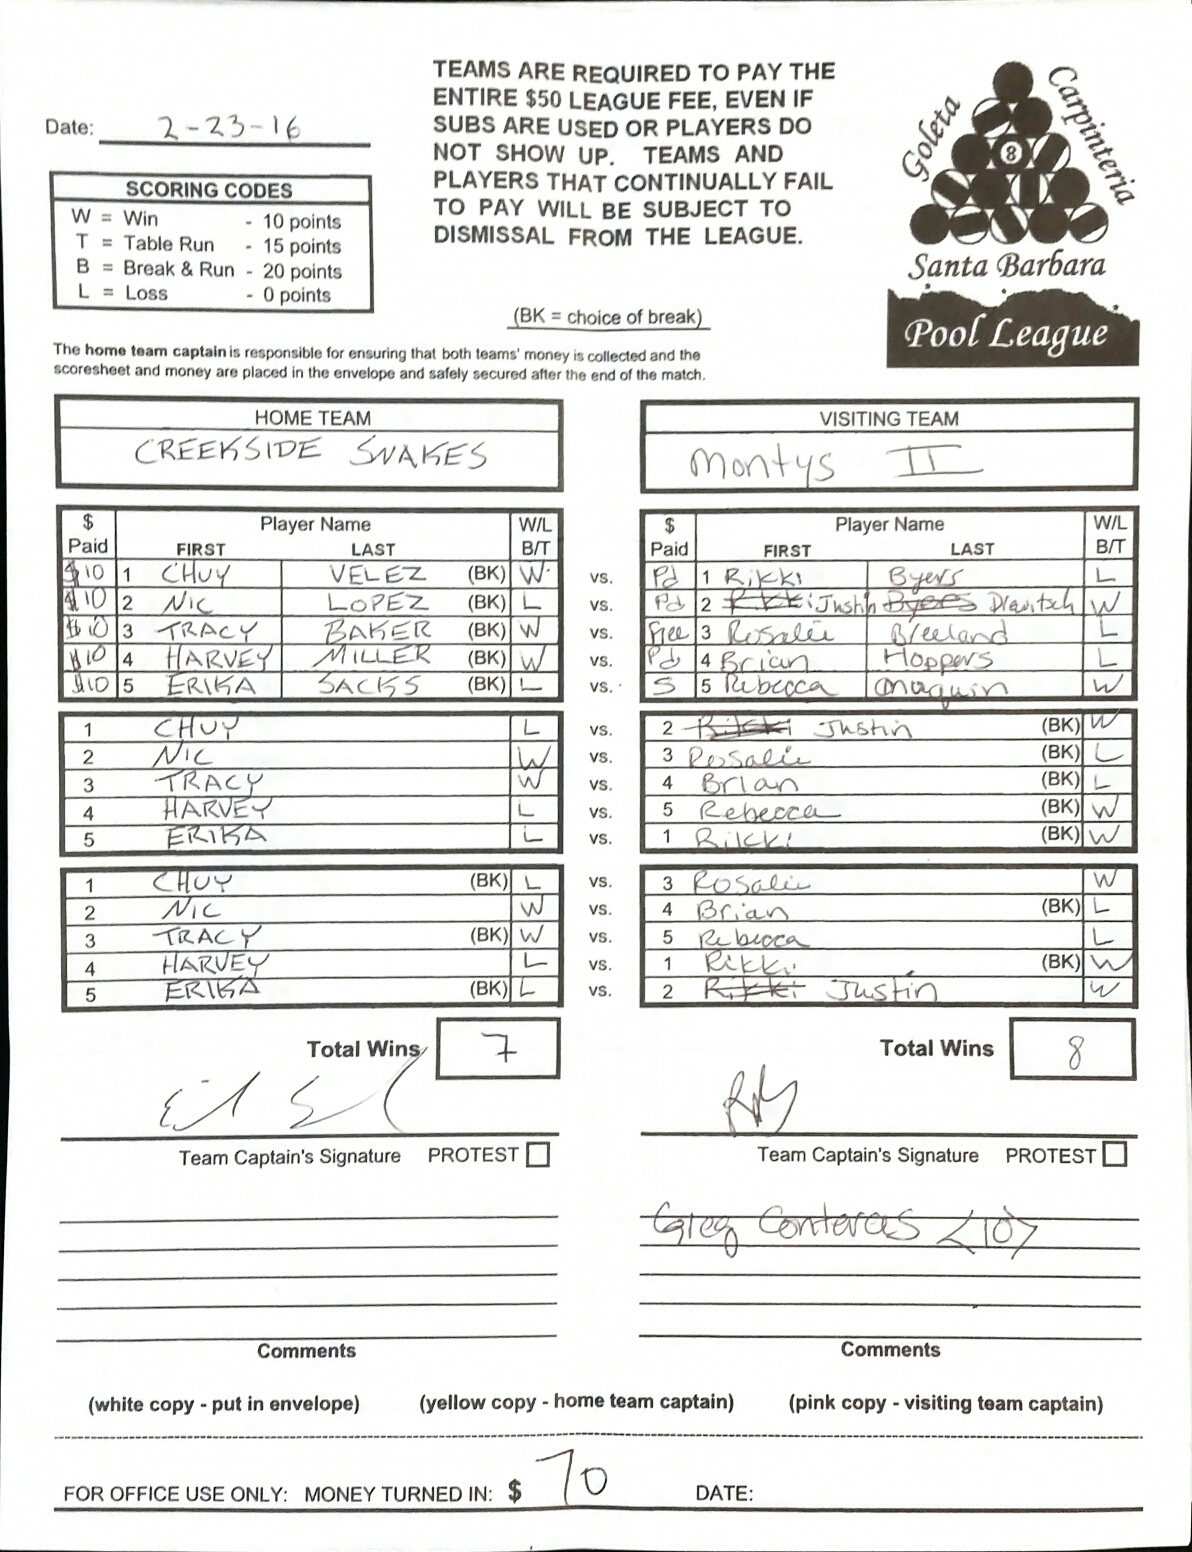 TEAMS ARE REQUIRED TO PAY THE
ENTIRE $50 LEAGUE FEE, EVEN IF
SUBS ARE USED OR PLAYERS DO
NOT SHOW UP. TEAMS AND
PLAYERS THAT CONTINUALLY FAIL
TO PAY WILL BE SUBJECT TO
DISMISSAL FROM THE LEAGUE.
Goleta
Carpinteria
8
Santa Barbara
Pool League
Date: 2-23-16
SCORING CODES
W = Win - 10 points
T = Table Run - 15 points
B = Break & Run - 20 points
L = Loss - 0 points
(BK = choice of break)
The home team captain is responsible for ensuring that both teams' money is collected and the
scoresheet and money are placed in the envelope and safely secured after the end of the match.
HOME TEAM VISITING TEAM
CREEKSIDE SNAKES Montys II
$ Player Name W/L $ Player Name W/L
Paid FIRST LAST B/T Paid FIRST LAST B/T
$10 1 CHUY VELEZ (BK) W vs. Pd 1 Rikki Byers L
$10 2 NIC LOPEZ (BK) L vs. Pd 2 Rikki Justin Byers W
$10 3 TRACY BAKER (BK) W vs. Free 3 Rosalie Breeland L
$10 4 HARVEY MILLER (BK) W vs. Pd 4 Brian Hoppers L
$10 5 ERIKA SACKS (BK) L vs. S 5 Rebecca Maquin W
1 CHUY L vs. 2 Rikki Justin (BK) W
2 NIC W vs. 3 Rosalie (BK) L
3 TRACY W vs. 4 Brian (BK) L
4 HARVEY L vs. 5 Rebecca (BK) W
5 ERIKA L vs. 1 Rikki (BK) W
1 CHUY (BK) L vs. 3 Rosalie W
2 NIC W vs. 4 Brian (BK) L
3 TRACY (BK) W vs. 5 Rebecca L
4 HARVEY L vs. 1 Rikki (BK) W
5 ERIKA (BK) L vs. 2 Rikki Justin W
Total Wins 7 Total Wins 8
Team Captain's Signature PROTEST Team Captain's Signature PROTEST
Greg Conteras <10>
Comments Comments
(white copy - put in envelope) (yellow copy - home team captain) (pink copy - visiting team captain)
FOR OFFICE USE ONLY: MONEY TURNED IN: $ 70 DATE: